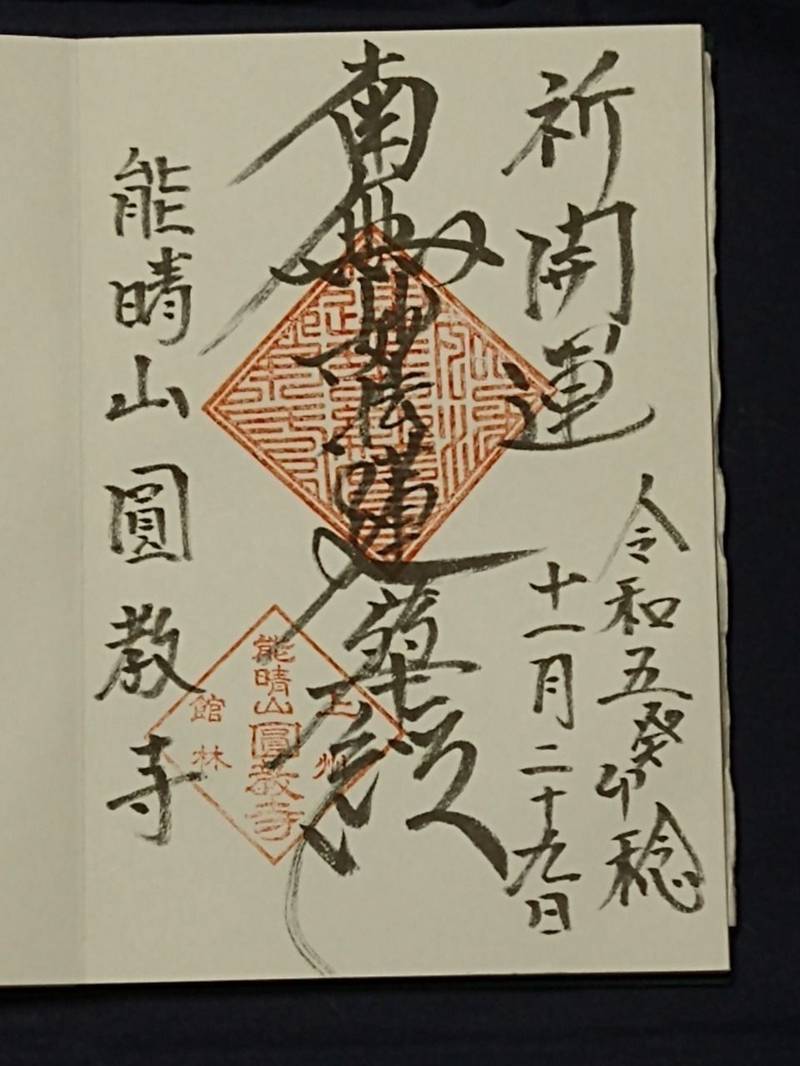 祈開運
令和五癸卯稔
十一月二十九日
南無妙法蓮華経
能晴山圓教寺
上州
能晴山圓教寺
館林